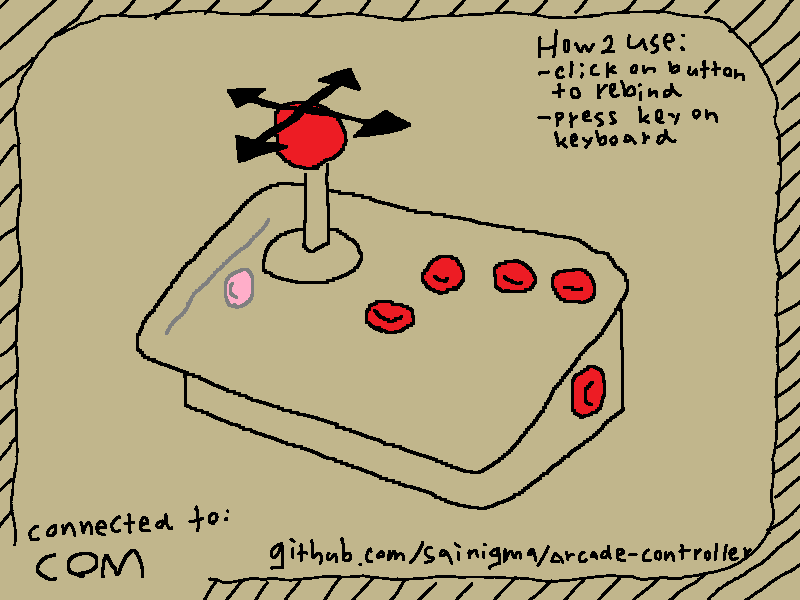 How 2 use:
-click on button
to rebind
-press key on
keyboard
connected to:
COM
github.com/sainigma/arcade-controller